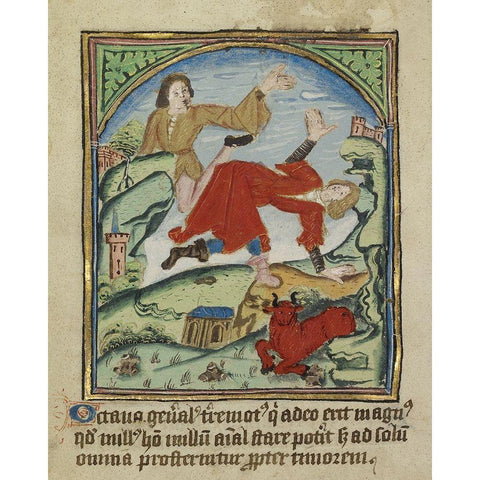 Octaua geńal᷒ t́remotꝰ qͥ adeo erit magnꝰ
qđ nullꝰ hō nullū aīal stare potít ꝫ ad solum
omnia prosternutur ꝓpter timorem ·